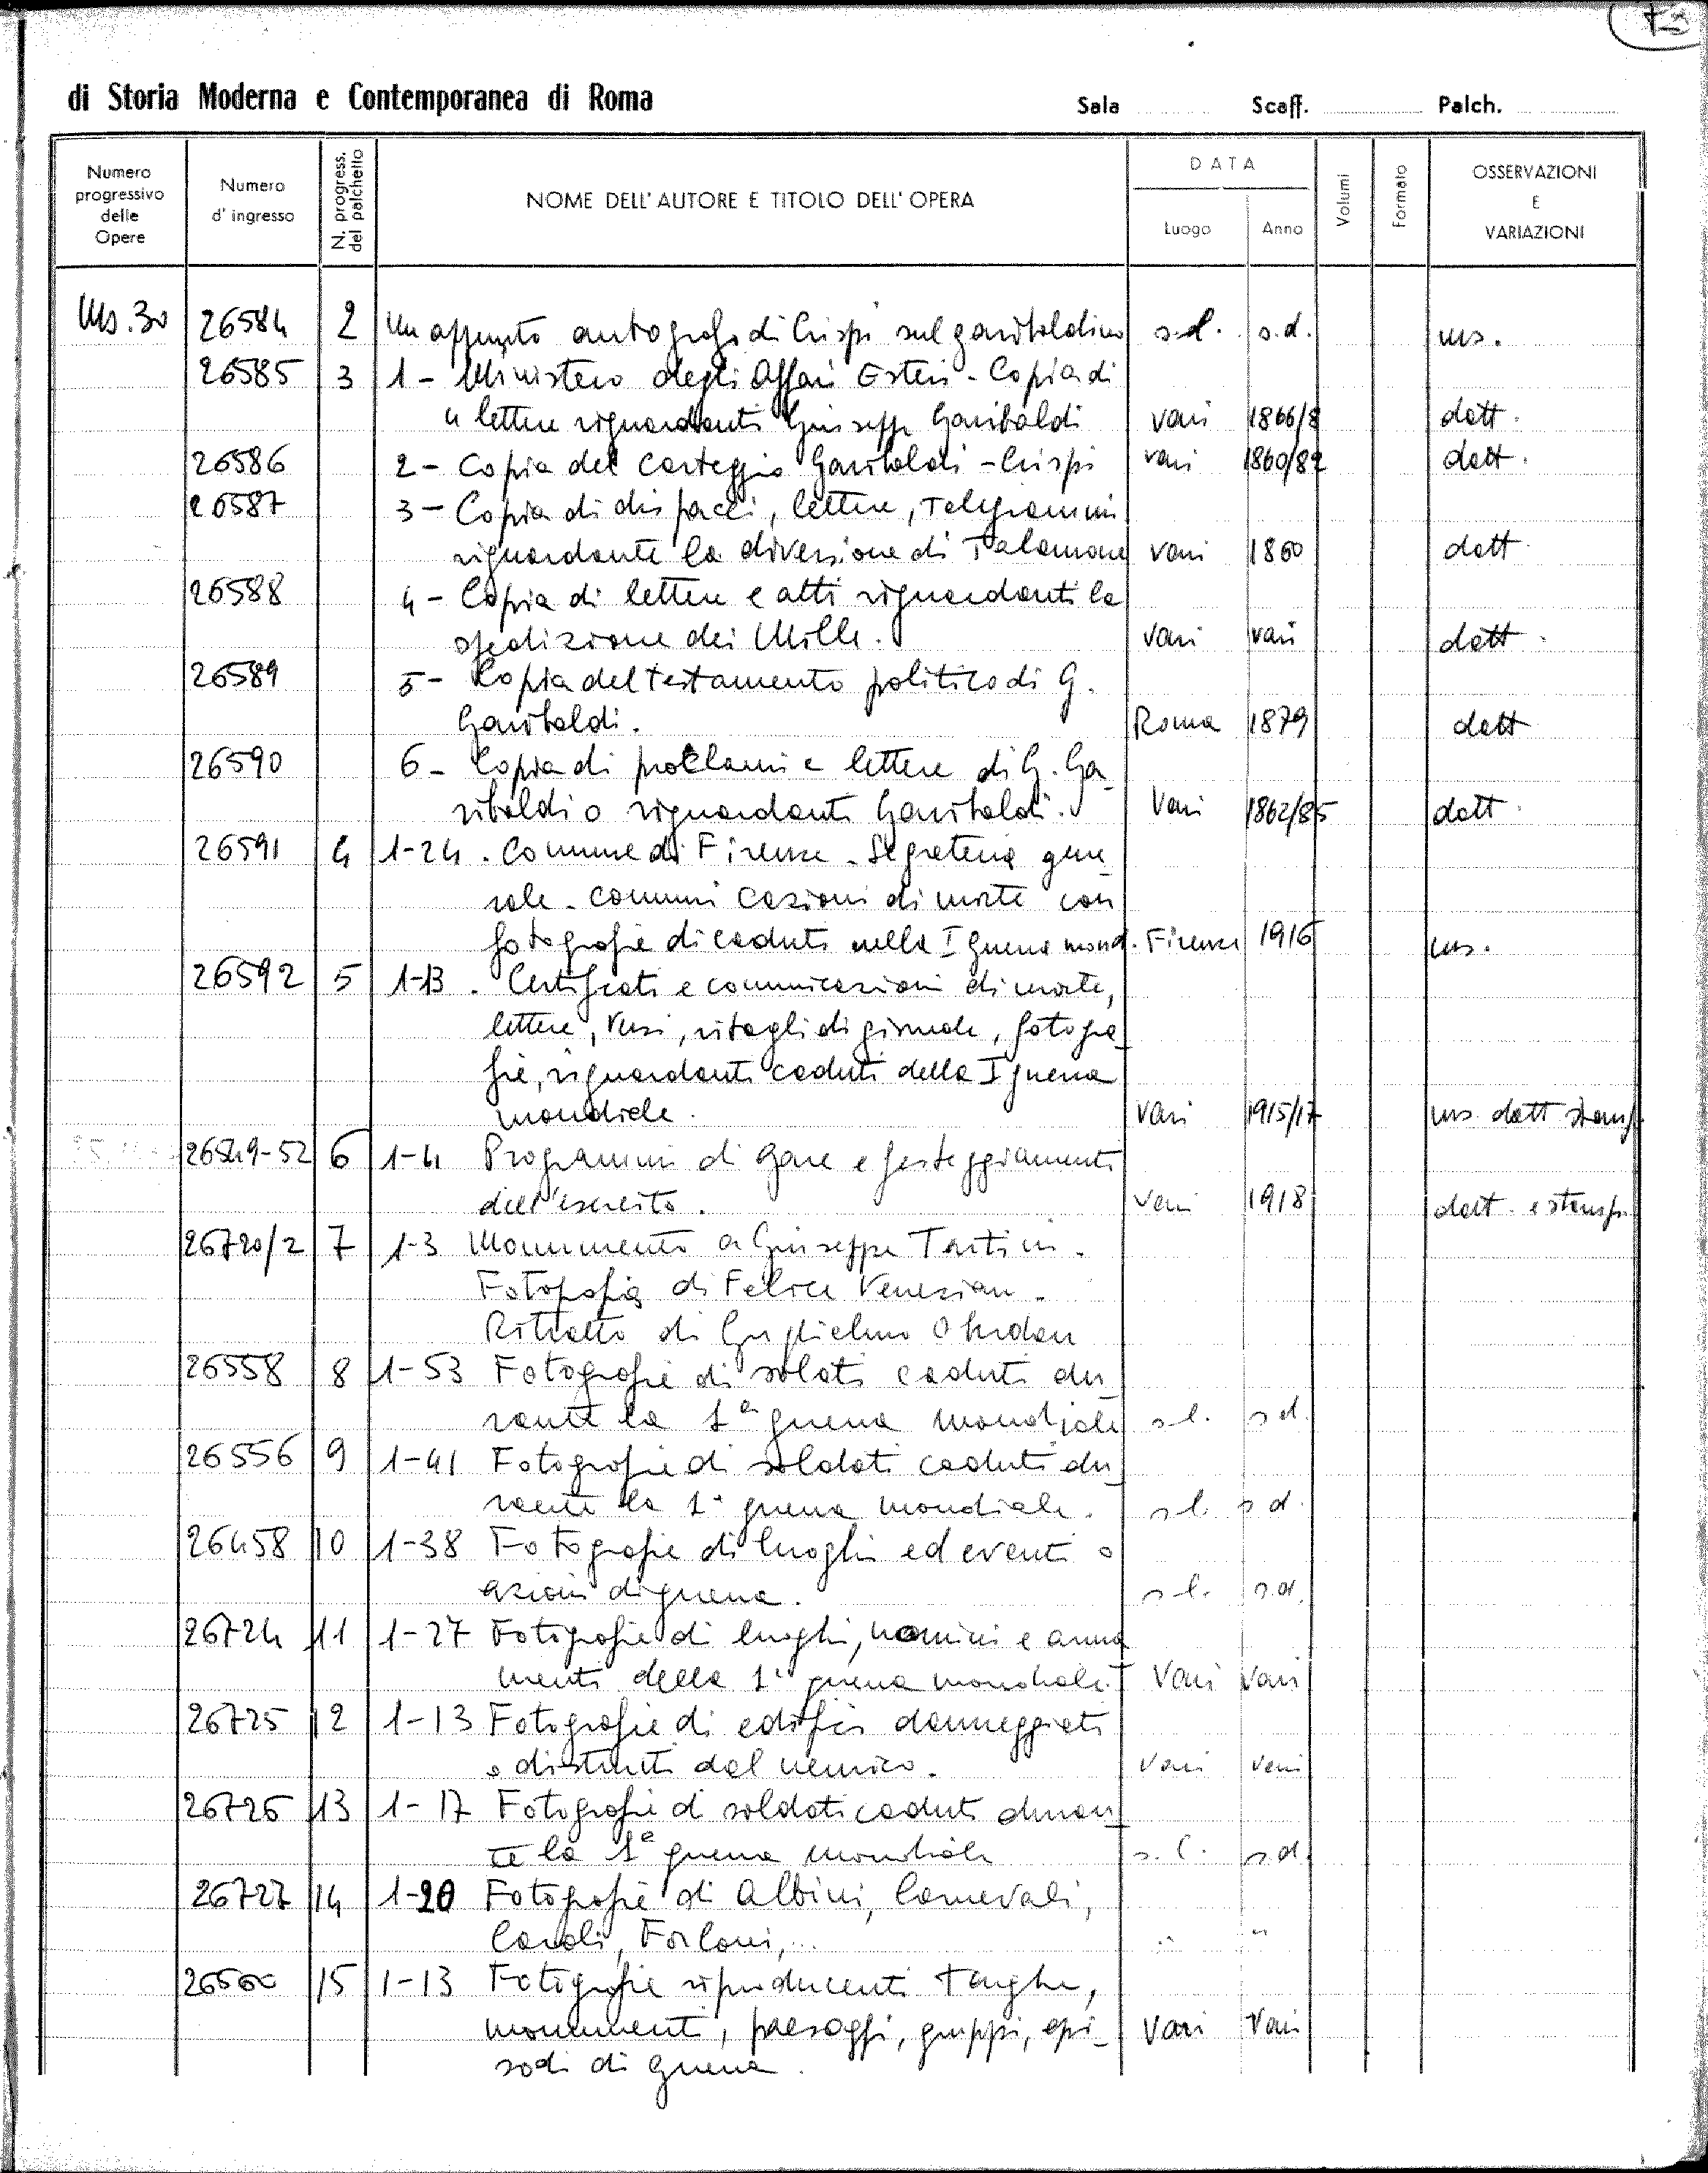 72
di Storia Moderna e Contemporanea di Roma Sala Scaff. Palch.
Numero progressivo delle Opere
Numero d' ingresso
N. progress. del palchetto
NOME DELL' AUTORE E TITOLO DELL' OPERA
DATA
Luogo
Anno
Volumi
Formato
OSSERVAZIONI E VARIAZIONI
Ms. 30 26584 2 Un appunto autografo di Crispi sul garibaldino s.l. s.d. ms.
26585 3 1 - Ministero degli Affari Esteri - Copia di
4 lettere riguardanti Giuseppe Garibaldi vari 1866/8 datt.
26586 2 - Copia del carteggio Garibaldi - Crispi vari 1860/82 datt.
26587 3 - Copia di dispacci, lettere, telegrammi
riguardante la diversione di Talamone vari 1860 datt.
26588 4 - Copia di lettere e atti riguardanti la
spedizione dei Mille. vari vari datt.
26589 5 - Copia del testamento politico di G.
Garibaldi. Roma 1879 datt
26590 6 - Copia di proclami e lettere di G. Ga-
ribaldi o riguardanti Garibaldi. Vari 1862/85 datt.
26591 4 1-24 . Comune di Firenze - Segreteria gene
rale - comunicazioni di morte con
fotografie di caduti nella I guerra mond. Firenze 1916 ms.
26592 5 1-13 . Certificati e comunicazioni di morte,
lettere, versi, ritagli di giornale, fotogra
fie, riguardanti caduti della I guerra
mondiale. vari 1915/17 ms. datt stamp
26549-52 6 1-4 Programmi di gare e festeggiamenti
dell'esercito. vari 1918 datt. e stamp.
26720/2 7 1-3 Monumento a Giuseppe Tartini.
Fotografia di Felice Venezian.
Ritratto di Guglielmo Oberdan
26558 8 1-53 Fotografie di soldati caduti du
rante la 1ª guerra mondiale s.l. s.d.
26556 9 1-41 Fotografie di soldati caduti du
rante la 1ª guerra mondiale. s.l. s.d.
26458 10 1-38 Fotografie di luoghi ed eventi o
azioni di guerra. s.l. s.d.
26724 11 1-27 Fotografie di luoghi, uomini e arma
menti della 1ª guerra mondiale. Vari Vari
26725 12 1-13 Fotografie di edifici danneggiati
o distrutti dal nemico. Vari Vari
26726 13 1-17 Fotografie di soldati caduti duran
te la 1ª guerra mondiale s.l. s.d.
26727 14 1-20 Fotografie di Albini, Carnevali,
Caroli, Forloni, ... " "
26560 15 1-13 Fotografie riproducenti targhe,
monumenti, paesaggi, gruppi, epi- Vari Vari
sodi di guerra.